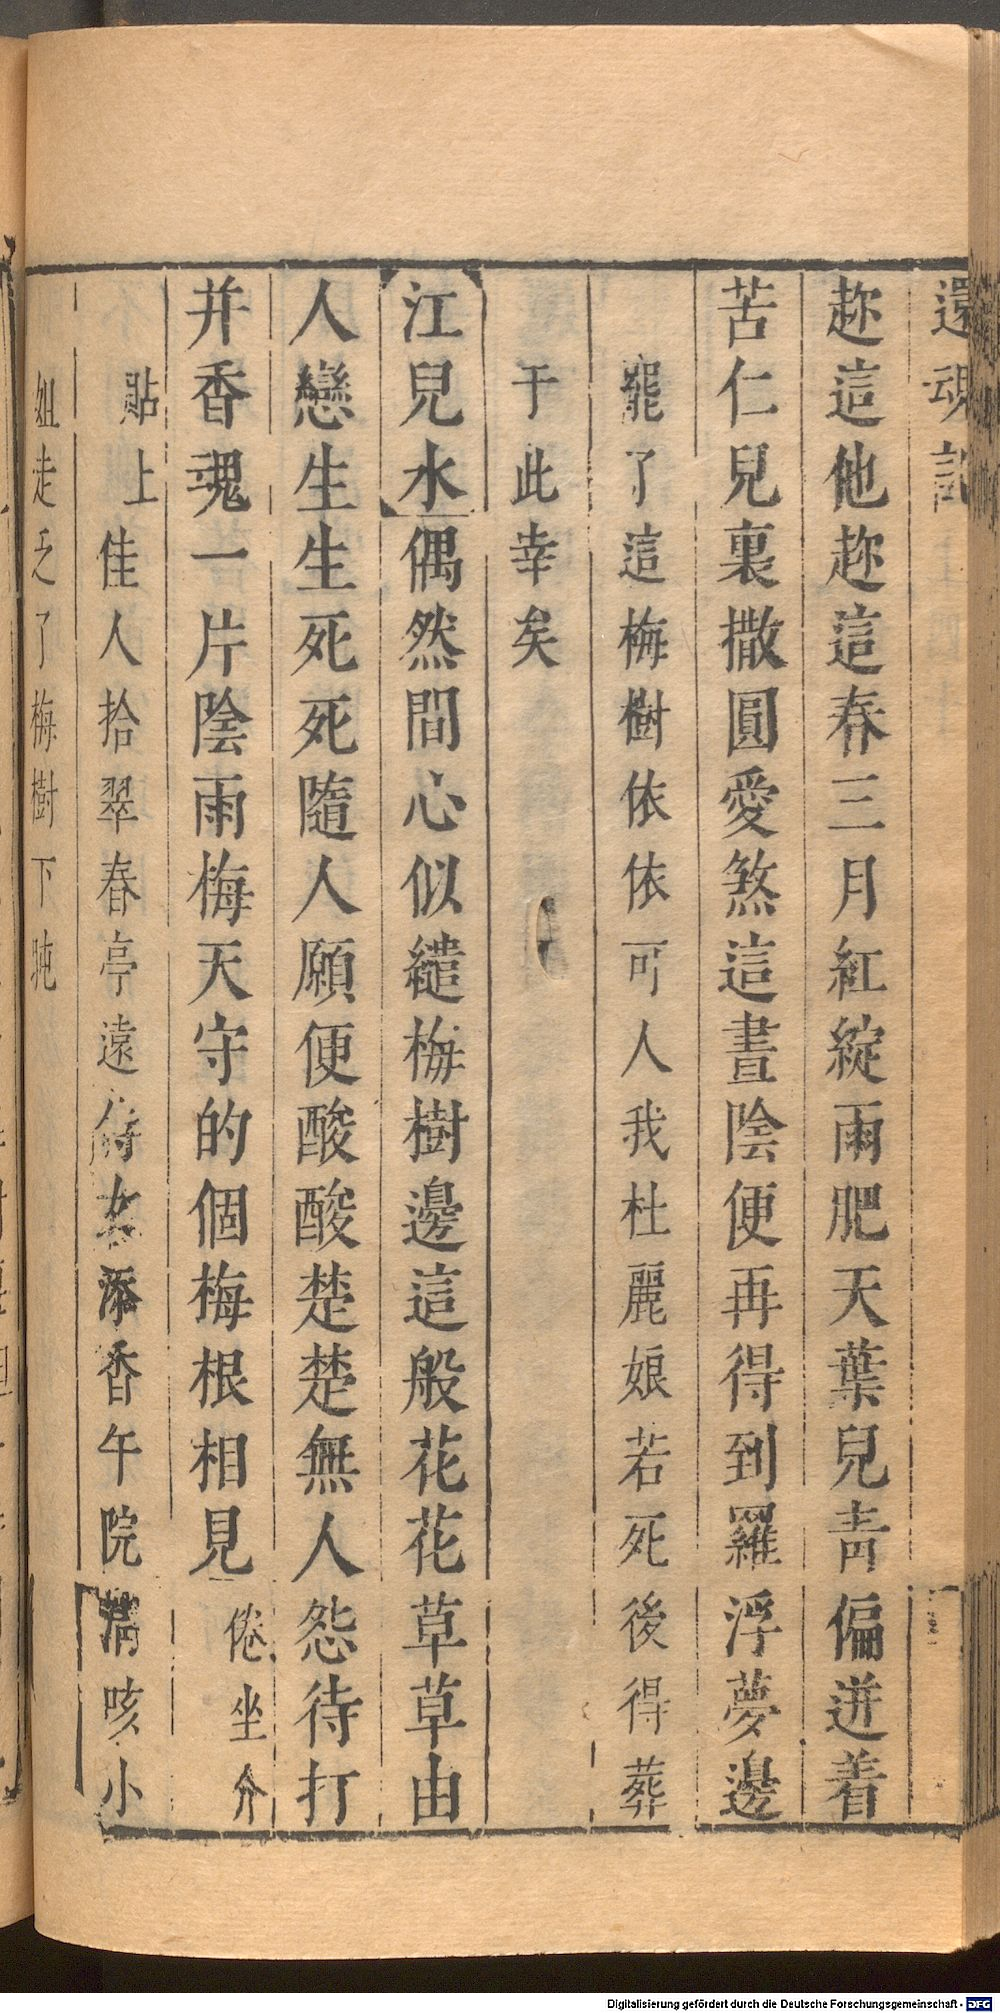 還魂記
趂這他趂這春三月紅綻雨肥天葉兒青偏迸着
苦仁兒裏撒圓愛煞這晝陰便再得到羅浮夢邊
罷了這梅樹依依可人我杜麗娘若死後得葬
于此幸矣
江兒水偶然間心似繾梅樹邊這般花花草草由
人戀生生死死隨人願便酸酸楚楚無人怨待打
并香魂一片陰雨梅天守的個梅根相見倦坐介
貼上佳人拾翠春亭遠侍女添香午院清咳小
姐走乏了梅樹下盹
Digitalisierung gefördert durch die Deutsche Forschungsgemeinschaft - DFG